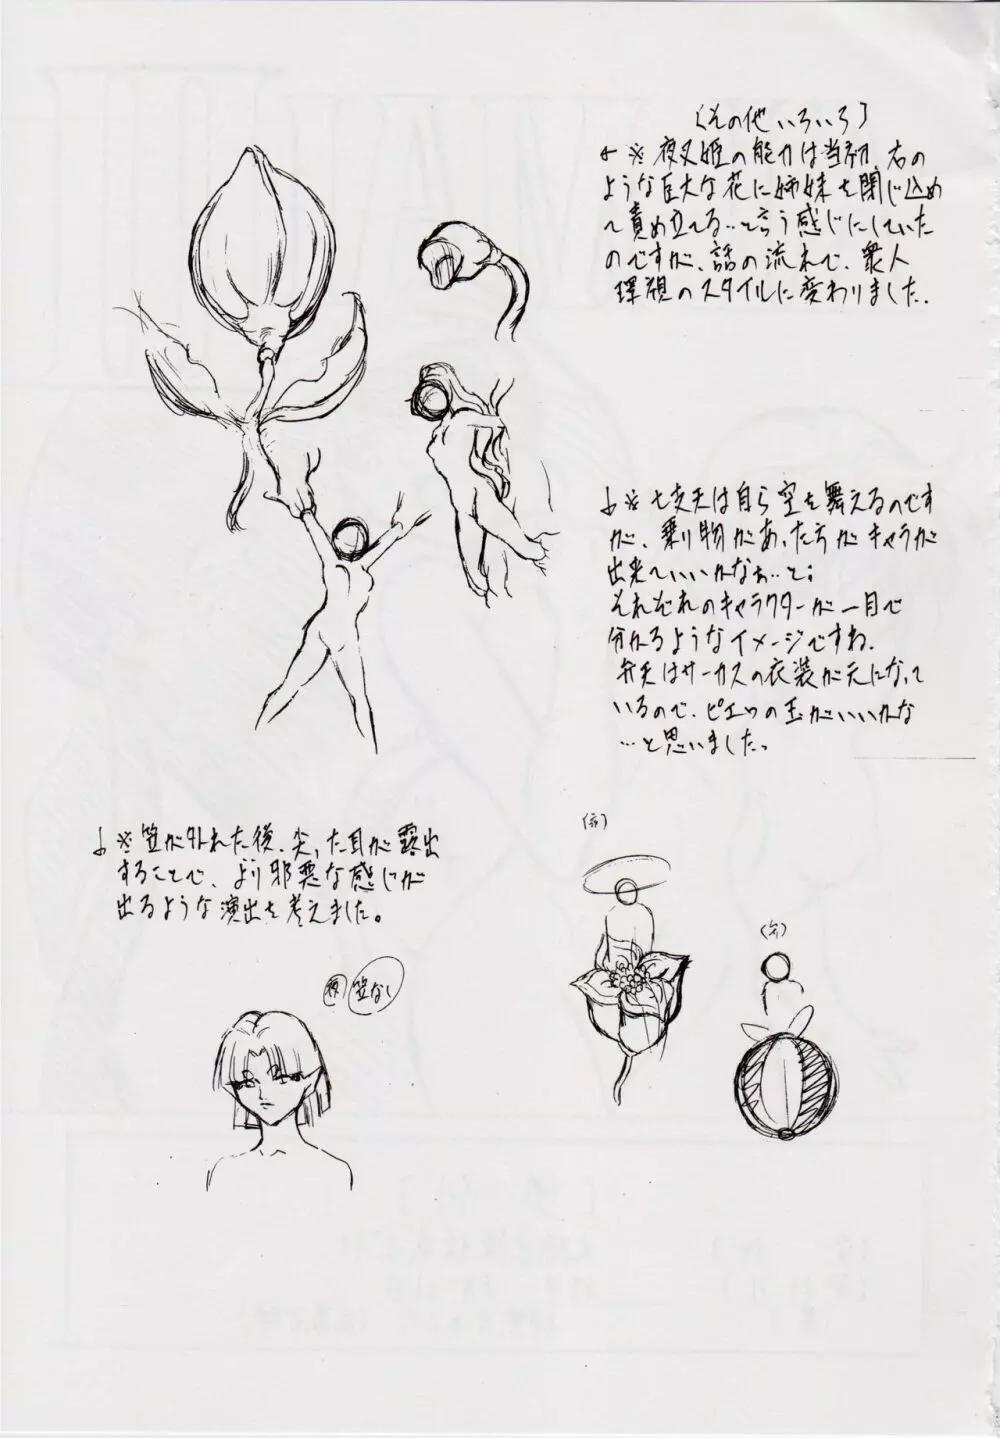 (その他いろいろ)
←※夜叉姫の能力は当初、右の
ような巨大な花に姉妹を閉じ込め
て責め立てる…と言う感じにしていた
のですが、話の流れで、衆人
環視のスタイルに変わりました.
↓※七支天は自ら空を舞えるのです
が、乗り物があったらがキャラが
出来ていいかなぁ…と;
それぞれのキャラクターが一目で
分かるようなイメージですね.
弁天はサーカスの衣装が元になって
いるので、ピエロの玉がいいかな
…と思いました。
↓※笠が外れた後、尖った耳が露出
することで、より邪悪な感じが
出るような演出を考えました。
夜 笠なし